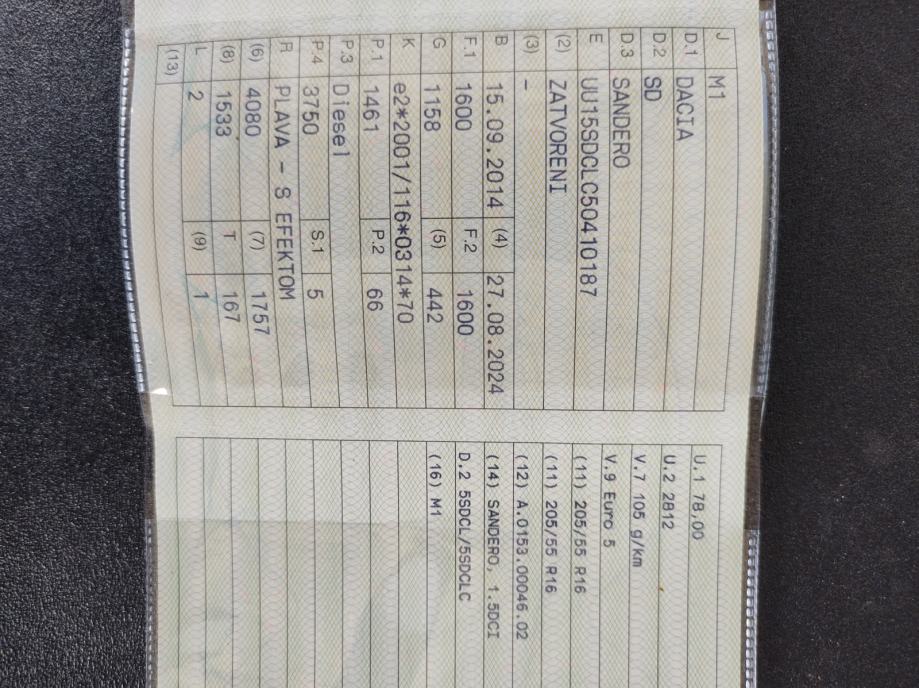 J M1
D.1 DACIA
D.2 SD
D.3 SANDERO
E UU15SDCLC50410187
(2) ZATVORENI
(3) -
B 15.09.2014 (4) 27.08.2024
F.1 1600 F.2 1600
G 1158 (5) 442
K e2*2001/116*0314*70
P.1 1461 P.2 66
P.3 Diesel
P.4 3750 S.1 5
R PLAVA - S EFEKTOM
(6) 4080 (7) 1757
(8) 1533 T 167
L 2 (9) 1
(13)
U.1 78,00
U.2 2812
V.7 105 g/km
V.9 Euro 5
(11) 205/55 R16
(11) 205/55 R16
(12) A.0153.00046.02
(14) SANDERO, 1.5DCI
D.2 5SDCL/5SDCLC
(16) M1